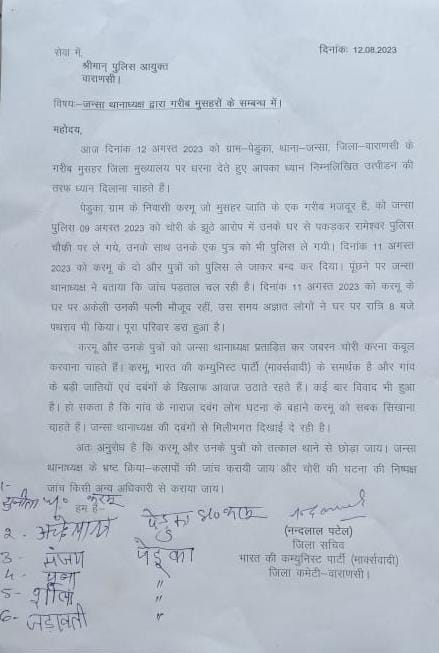 सेवा में,
दिनांकः 12.08.2023
श्रीमान् पुलिस आयुक्त
वाराणसी।
विषयः–जन्सा थानाध्यक्ष द्वारा गरीब मुसहरों के सम्बन्ध में।
महोदय,
आज दिनांक 12 अगस्त 2023 को ग्राम-पेडुका, थाना-जन्सा, जिला-वाराणसी के
गरीब मुसहर जिला मुख्यालय पर धरना देते हुए आपका ध्यान निम्नलिखित उत्पीड़न की
तरफ ध्यान दिलाना चाहते हैं।
पेडुका ग्राम के निवासी करमू जो मुसहर जाति के एक गरीब मजदूर है, को जन्सा
पुलिस 09 अगस्त 2023 को चोरी के झूठे आरोप में उनके घर से पकड़कर रामेश्वर पुलिस
चौकी पर ले गये, उनके साथ उनके एक पुत्र को भी पुलिस ले गयी। दिनांक 11 अगस्त
2023 को करमू के दो और पुत्रों को पुलिस ले जाकर बन्द कर दिया। पूंछने पर जन्सा
थानाध्यक्ष ने बताया कि जांच पड़ताल चल रही है। दिनांक 11 अगस्त 2023 को करमू के
घर पर अकेली उनकी पत्नी मौजूद रहीं, उस समय अज्ञात लोगों ने घर पर रात्रि 8 बजे
पथराव भी किया। पूरा परिवार डरा हुआ है।
करमू और उनके पुत्रों को जन्सा थानाध्यक्ष प्रताड़ित कर जबरन चोरी करना कबूल
करवाना चाहते हैं। करमू, भारत की कम्युनिस्ट पार्टी (मार्क्सवादी) के समर्थक है और गांव
के बड़ी जातियों एवं दबंगों के खिलाफ आवाज उठाते रहते हैं। कई बार विवाद भी हुआ
है। हो सकता है कि गांव के नाराज दबंग लोग घटना के बहाने करमू को सबक सिखाना
चाहते हैं। जन्सा थानाध्यक्ष की दबंगों से मिलीभगत दिखाई दे रही है।
अतः अनुरोध है कि करमू और उनके पुत्रों को तत्काल थाने से छोड़ा जाय। जन्सा
थानाध्यक्ष के भ्रष्ट क्रिया-कलापों की जांच करायी जाय और चोरी की घटना की निष्पक्ष
जांच किसी अन्य अधिकारी से कराया जाय।
1-
सुनीता करमू
हम है–
2- पेडुका
3- संजय पेडुका
4- "
5- शीला "
6- जड़ावती "
(नन्दलाल पटेल)
जिला सचिव
भारत की कम्युनिस्ट पार्टी (मार्क्सवादी)
जिला कमेटी-वाराणसी।